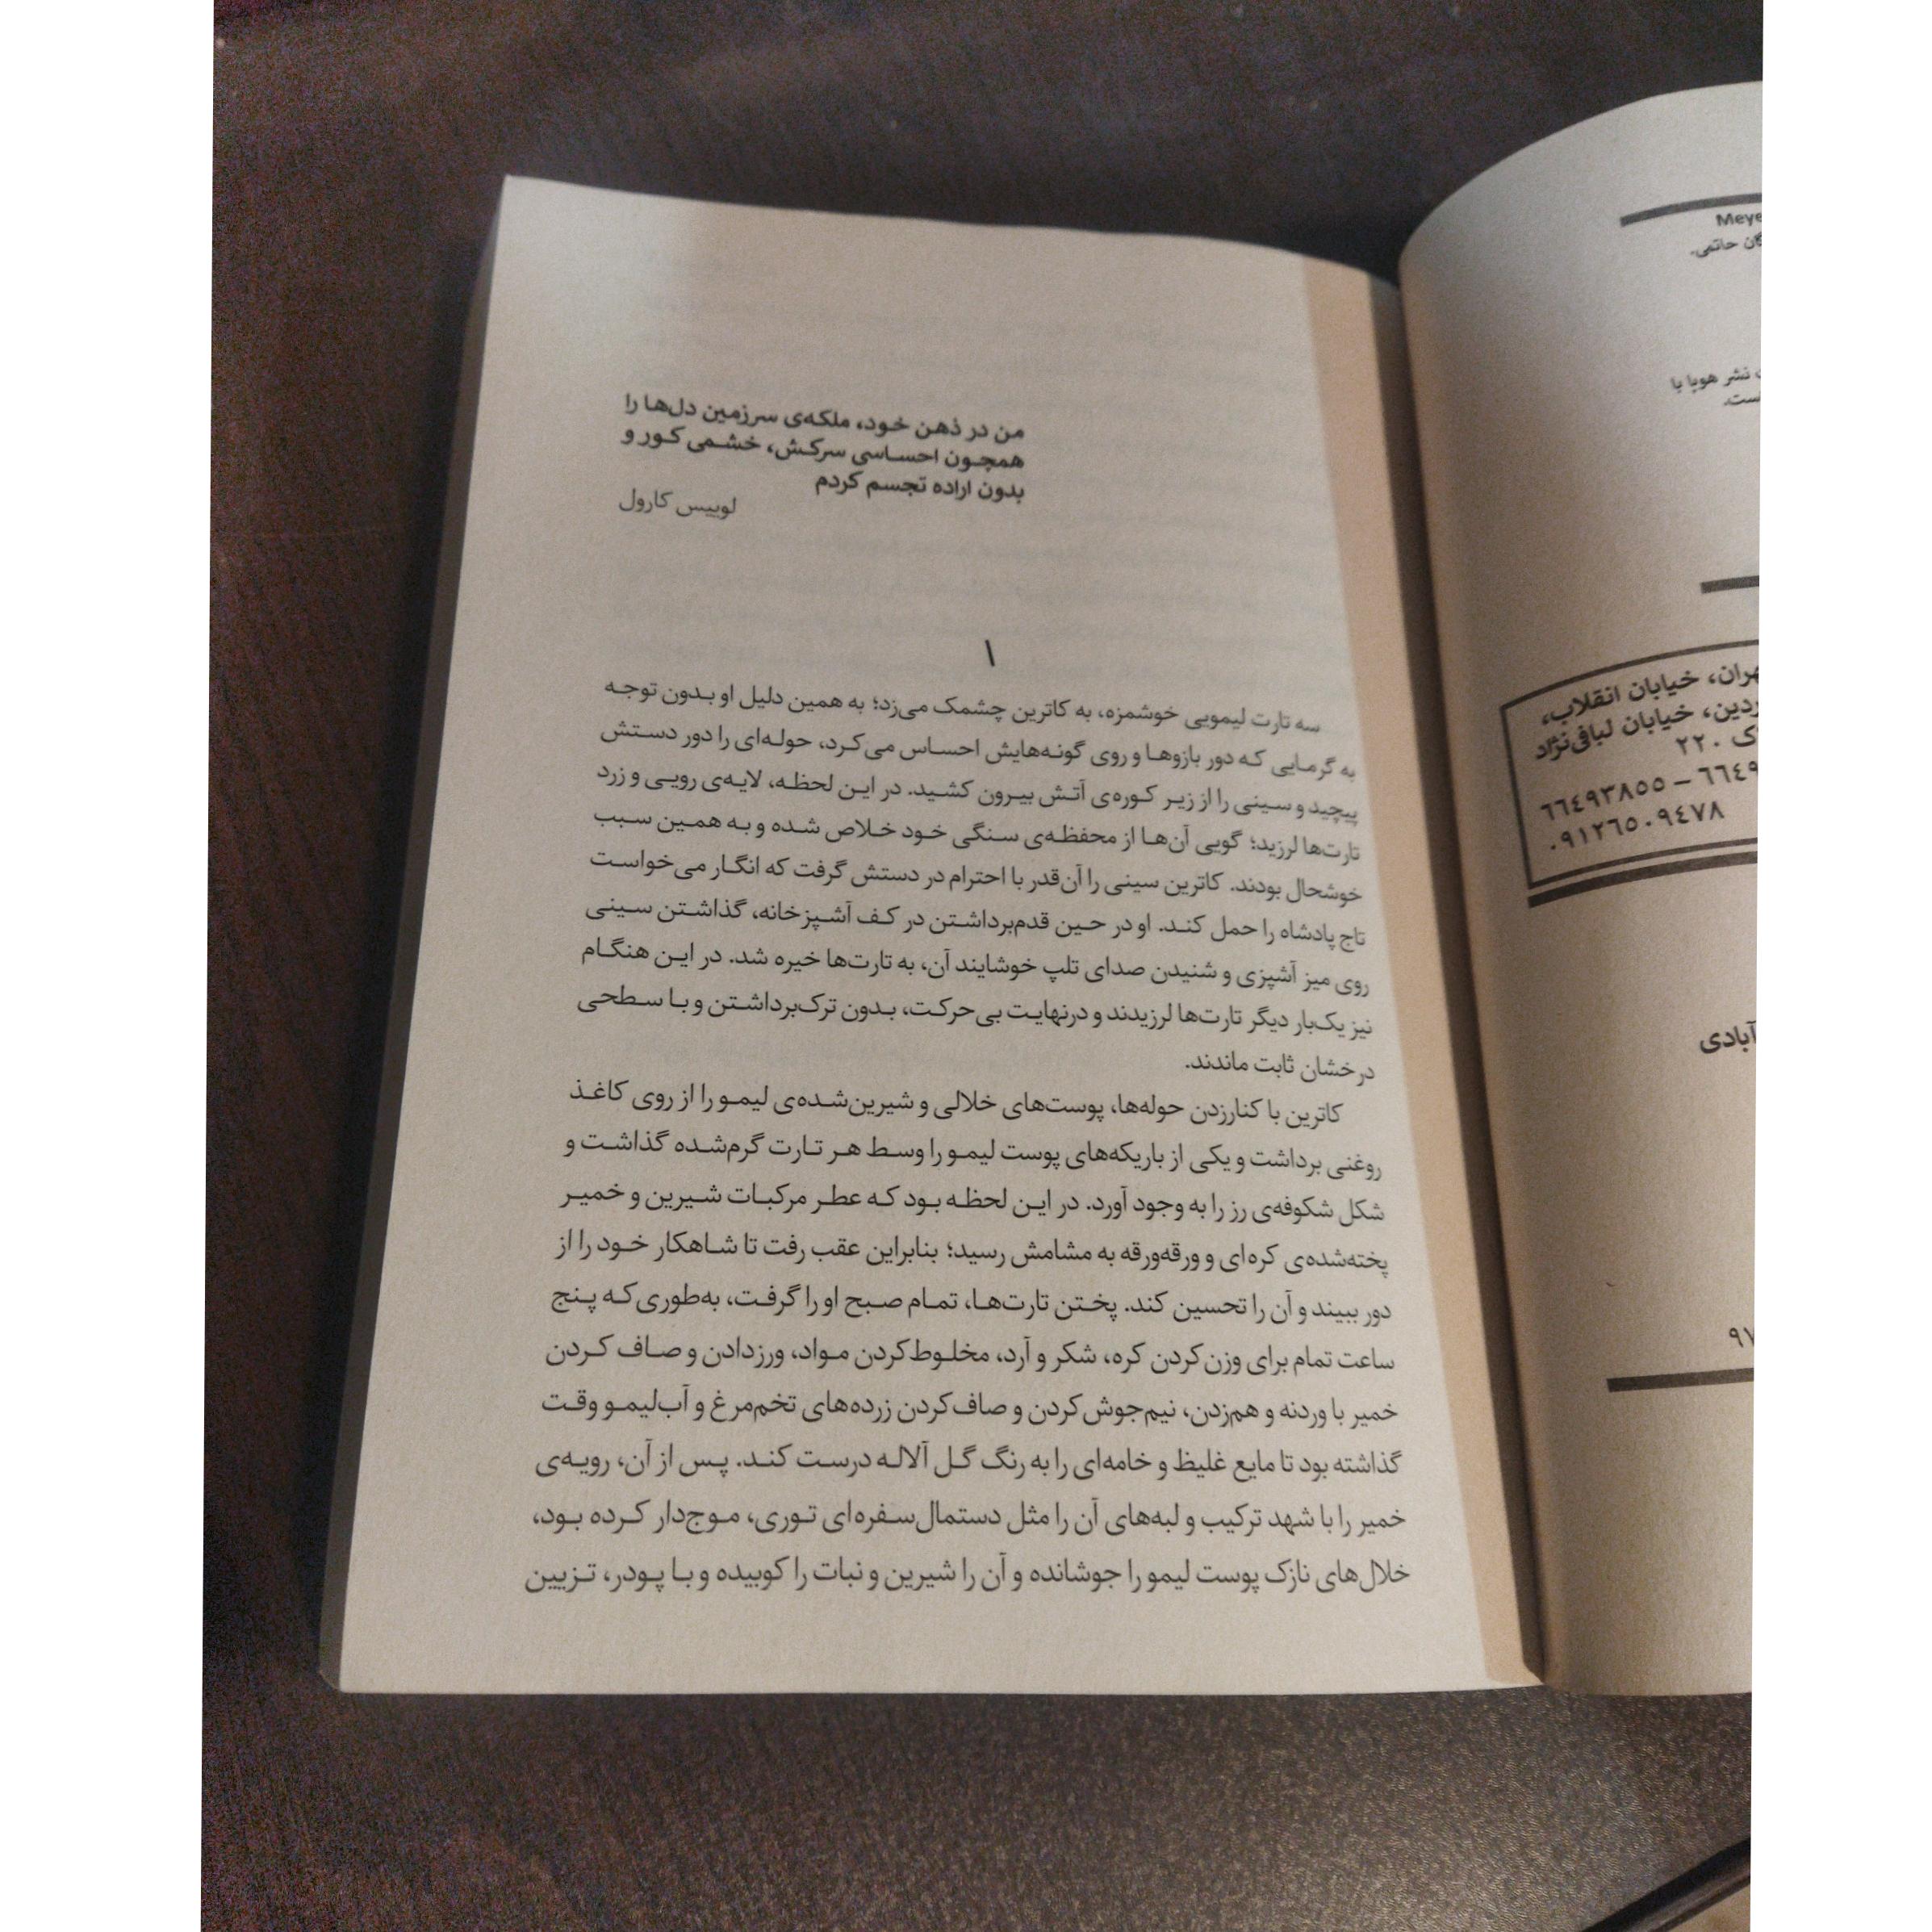 من در ذهن خود، ملکه‌ی سرزمین دل‌ها را
همچون احساسی سرکش، خشمی کور و
بدون اراده تجسم کردم
لوییس کارول
۱
سه تارت لیمویی خوشمزه، به کاترین چشمک می‌زد؛ به همین دلیل او بدون توجه
به گرمایی که دور بازوها و روی گونه‌هایش احساس می‌کرد، حوله‌ای را دور دستش
پیچید و سینی را از زیر کوره‌ی آتش بیرون کشید. در این لحظه، لایه‌ی رویی و زرد
تارت‌ها لرزید؛ گویی آن‌ها از محفظه‌ی سنگی خود خلاص شده و به همین سبب
خوشحال بودند. کاترین سینی را آن‌قدر با احترام در دستش گرفت که انگار می‌خواست
تاج پادشاه را حمل کند. او در حین قدم‌برداشتن در کف آشپزخانه، گذاشتن سینی
روی میز آشپزی و شنیدن صدای تلپ خوشایند آن، به تارت‌ها خیره شد. در این هنگام
نیز یک‌بار دیگر تارت‌ها لرزیدند و درنهایت بی‌حرکت، بدون ترک‌برداشتن و با سطحی
درخشان ثابت ماندند.
کاترین با کنارزدن حوله‌ها، پوست‌های خلالی و شیرین‌شده‌ی لیمو را از روی کاغذ
روغنی برداشت و یکی از باریکه‌های پوست لیمو را وسط هر تارت گرم‌شده گذاشت و
شکل شکوفه‌ی رز را به وجود آورد. در این لحظه بود که عطر مرکبات شیرین و خمیر
پخته‌شده‌ی کره‌ای و ورقه‌ورقه به مشامش رسید؛ بنابراین عقب رفت تا شاهکار خود را از
دور ببیند و آن را تحسین کند. پختن تارت‌ها، تمام صبح او را گرفت، به‌طوری‌که پنج
ساعت تمام برای وزن‌کردن کره، شکر و آرد، مخلوط‌کردن مواد، ورزدادن و صاف کردن
خمیر با وردنه و هم‌زدن، نیم‌جوش‌کردن و صاف‌کردن زرده‌های تخم‌مرغ و آب‌لیمو وقت
گذاشته بود تا مایع غلیظ و خامه‌ای را به رنگ گل آلاله درست کند. پس از آن، رویه‌ی
خمیر را با شهد ترکیب و لبه‌های آن را مثل دستمال‌سفره‌ای توری، موج‌دار کرده بود،
خلال‌های نازک پوست لیمو را جوشانده و آن را شیرین و نبات را کوبیده و با پودر، تزیین
حاتمی.
نشر هوپا با
خیابان انقلاب،
خیابان لبافی‌نژاد
۲۲۰
۶۶۴۹۳۸۵۵ –
۰۹۱۲۶۵۰۹۴۷۸